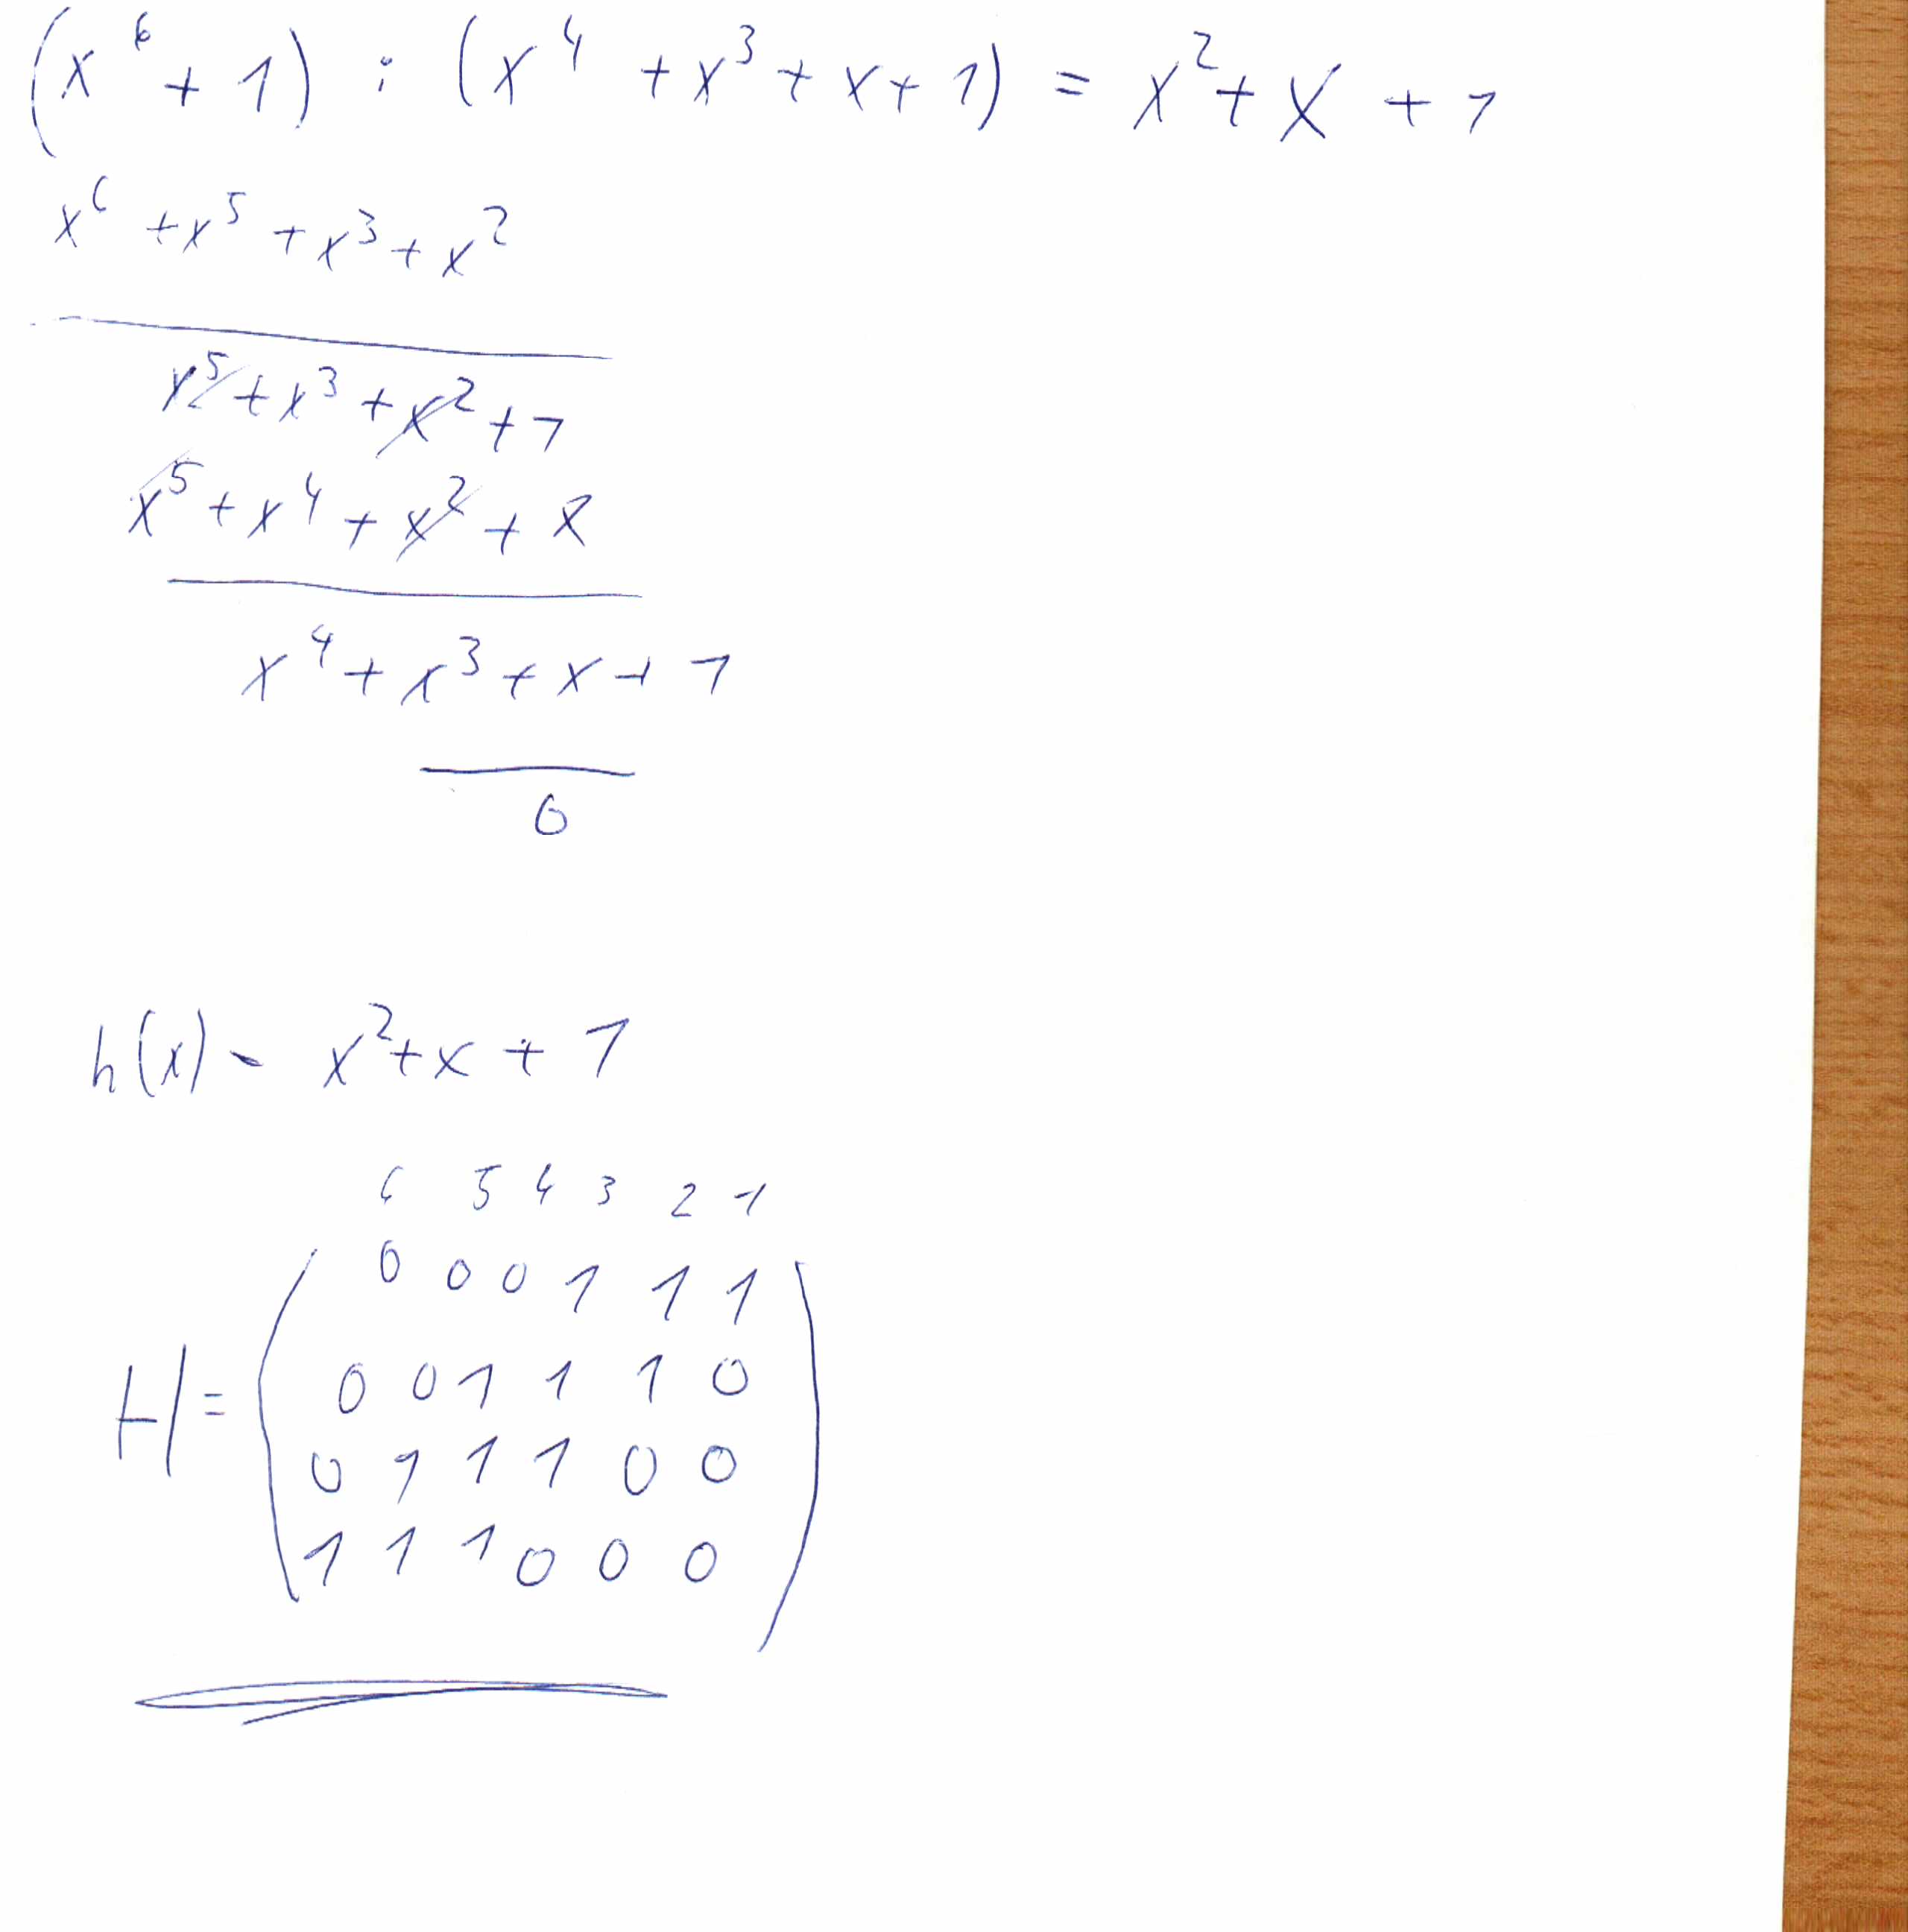 (x⁶ + 1) : (x⁴ + x³ + x + 1) = x² + x + 1
x⁶ + x⁵ + x³ + x²
x⁵ + x³ + x² + 1
x⁵ + x⁴ + x² + x
x⁴ + x³ + x + 1
0
h(x) = x² + x + 1
6 5 4 3 2 1
0 0 0 1 1 1
0 0 1 1 1 0
H = 0 1 1 1 0 0
1 1 1 0 0 0